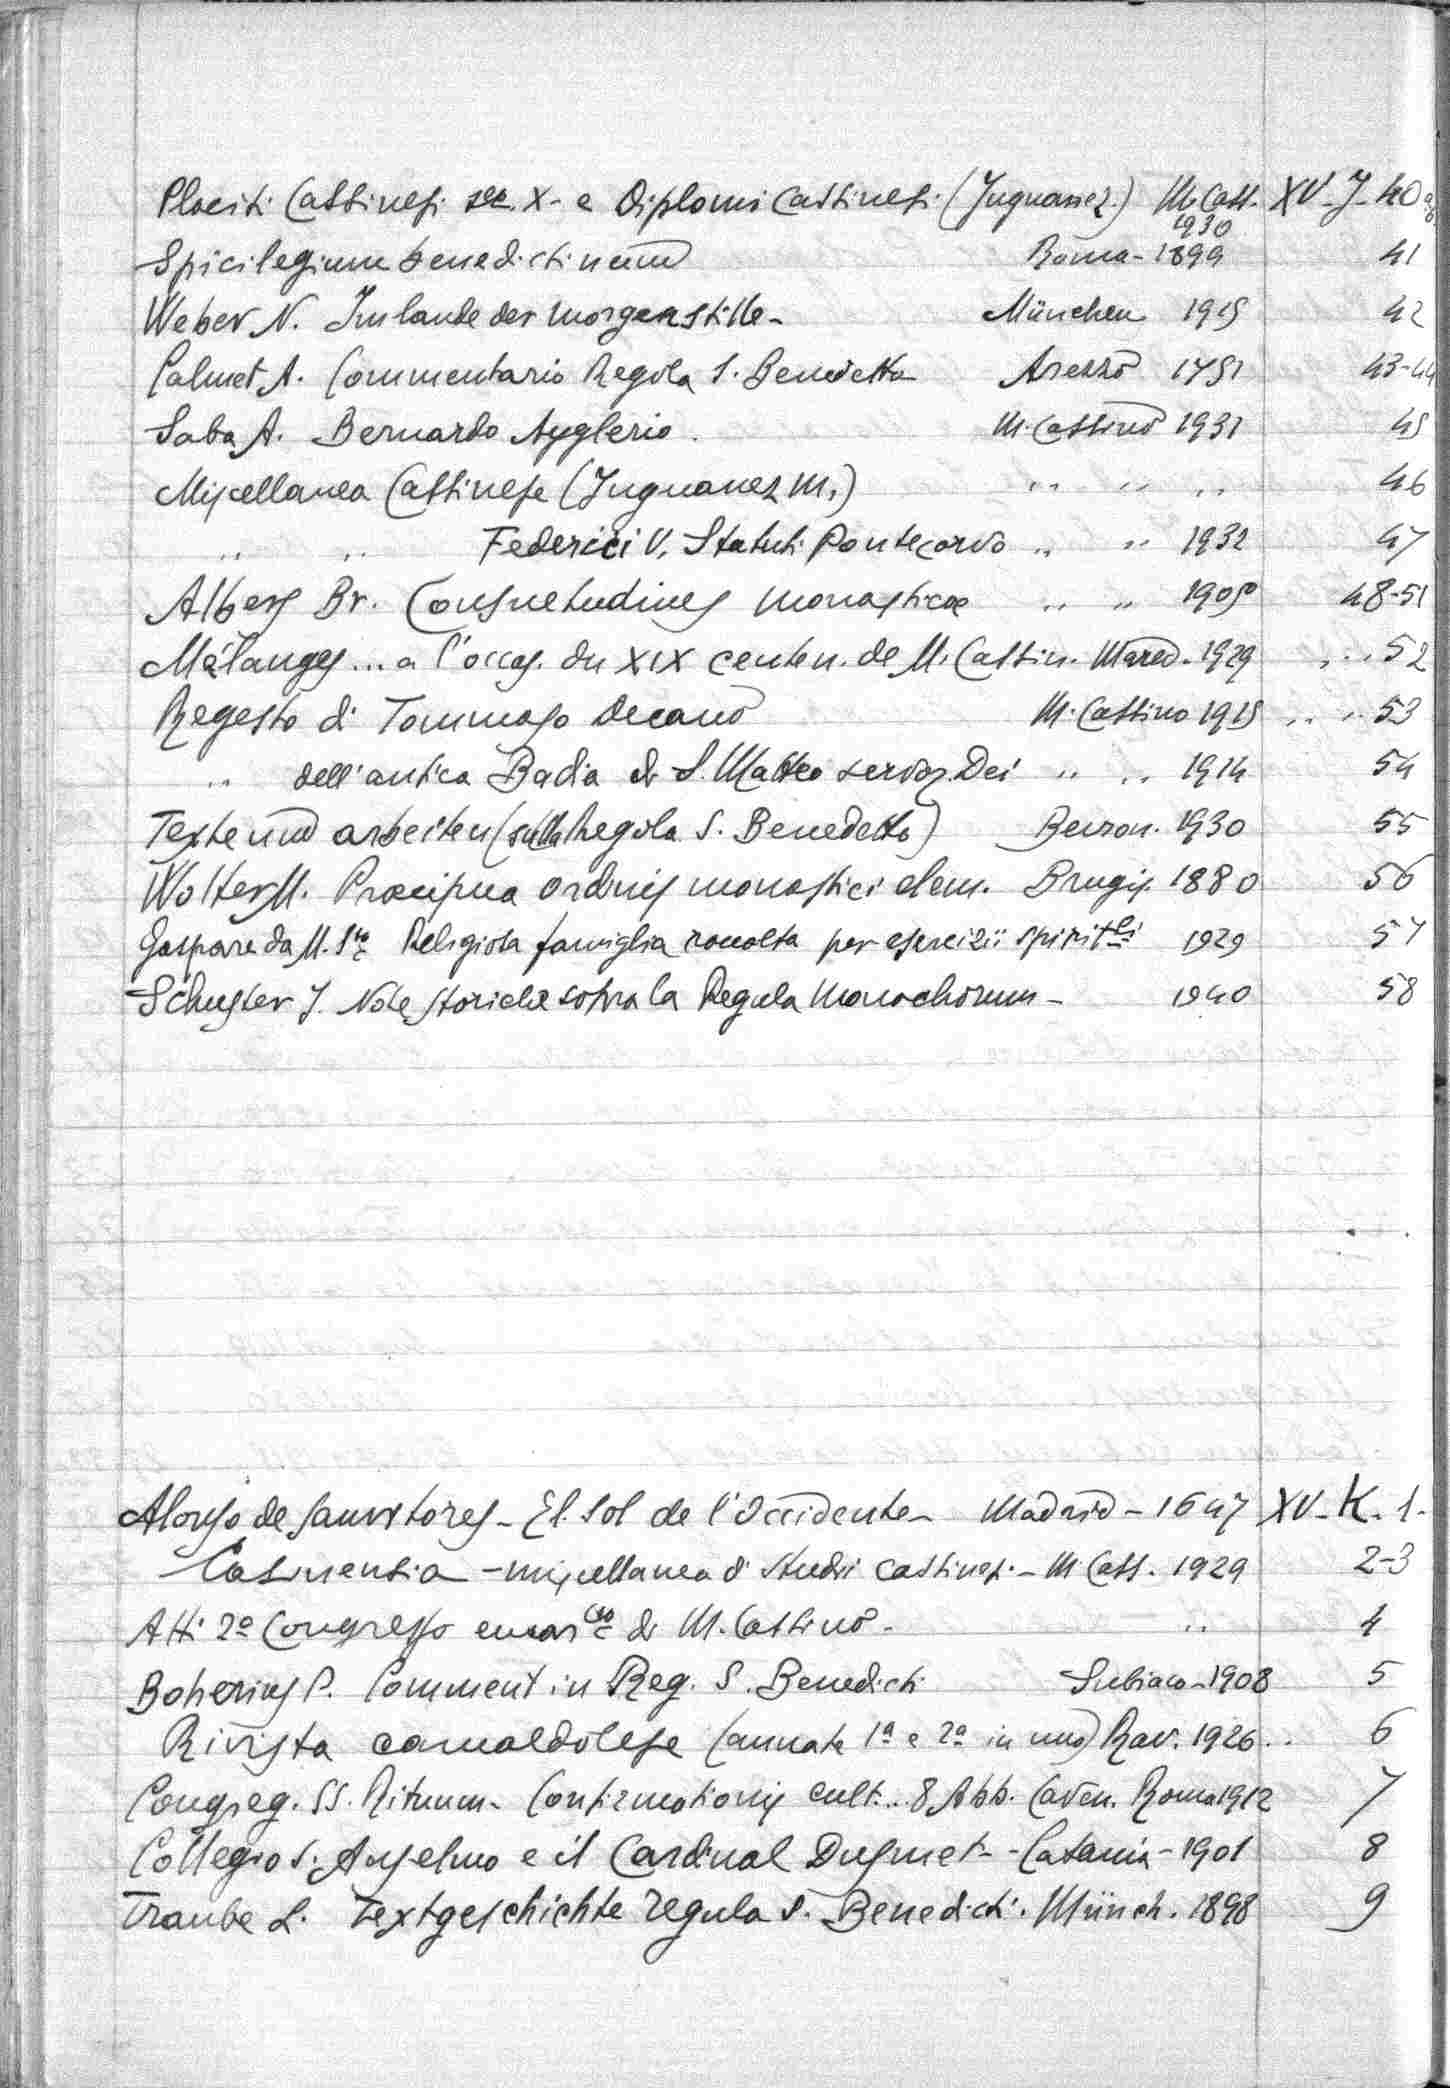 Placiti Cassinesi sec. X - e Diplomi Cassinesi (Inguanez.) M. Cass. 1930 XV - J - 40
Spicilegium benedictinum Roma - 1899 41
Weber N. Im lande der morgenstille - München 1915 42
Calmet A. Commentario Regola S. Benedetto Arezzo 1751 43-44
Saba A. Bernardo Ayglerio. M. Cassino 1931 45
Miscellanea Cassinese (Inguanez M.) " " " 46
" " Federici V. Statuti Pontecorvo " " 1932 47
Albers Br. Consuetudines monasticae " " 1905 48-51
Mélanges ... a l'occas. du XIX centen. de M. Cassin. Mared. 1929 " " 52
Regesto di Tommaso Decano M. Cassino 1915 " " 53
" dell'antica Badia di S. Matteo servor. Dei " " 1914 54
Texte und arbeiten (sulla Regola S. Benedetto) Beuron. 1930 55
Wolter M. Praecipua ordinis monastici elem. Brugis. 1880 56
Gaspare da M. Religiosa famiglia raccolta per esercizii spirit.li 1929 57
Schuster J. Note storiche sopra la Regula Monachorum - 1940 58
Alonso de Sanvitores - El Sol de l'Occidente - Madrid - 1647 XV - K. 1.
Casinensia - miscellanea di studii cassinesi - M. Cass. 1929 2-3
Atti 2º Congresso eucar.co di M. Cassino - " 4
Boherius P. Comment in Reg. S. Benedicti Subiaco - 1908 5
Rivista camaldolese (annate 1ª e 2ª in uno) Rav. 1926 .. 6
Congreg. SS. Rituum - Confirmationis cult. .. 8 Abb. Caven. Roma 1912 7
Collegio S. Anselmo e il Cardinal Dusmet - - Catania - 1901 8
Traube L. Textgeschichte regula S. Benedicti. Münch. 1898 9